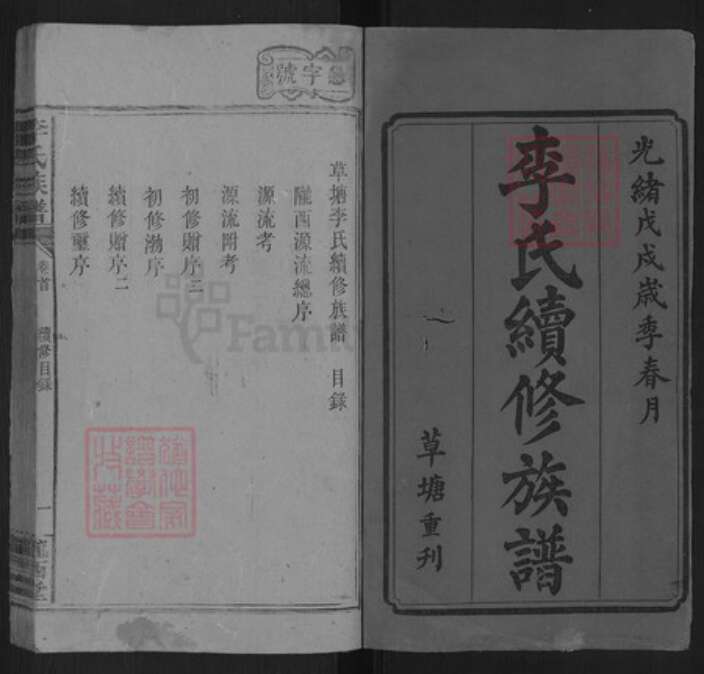 光緒戊戌歲季春月
李氏續修族譜
草塘重刊
字號
草塘李氏續修族譜 目錄
隴西源流總序
源流考
源流附考
初修贈序三
初修渤序
續修贈序二
續修壐序
李氏族譜
卷首
續修目錄
一
隴西堂
Family